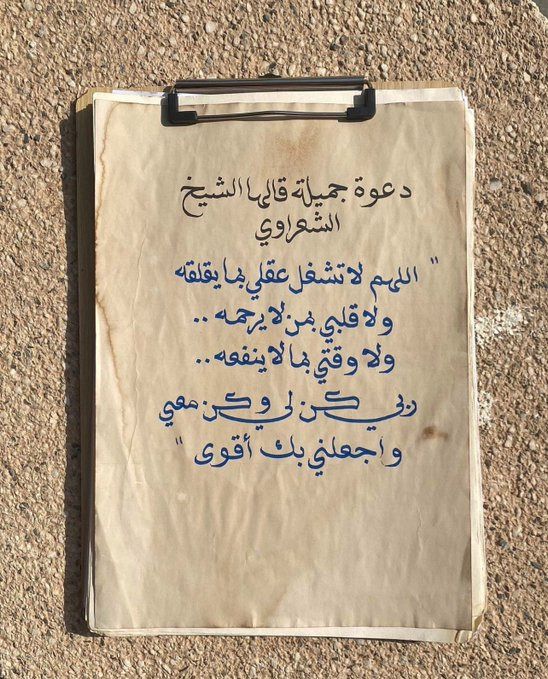 دعوة جميلة قالها الشيخ
الشعراوي
" اللهم لا تشغل عقلي بما يقلقه
ولا قلبي بمن لا يرحمه ..
ولا وقتي بما لا ينفعه ..
ربي كن لي وكن معي
واجعلني بك أقوى "